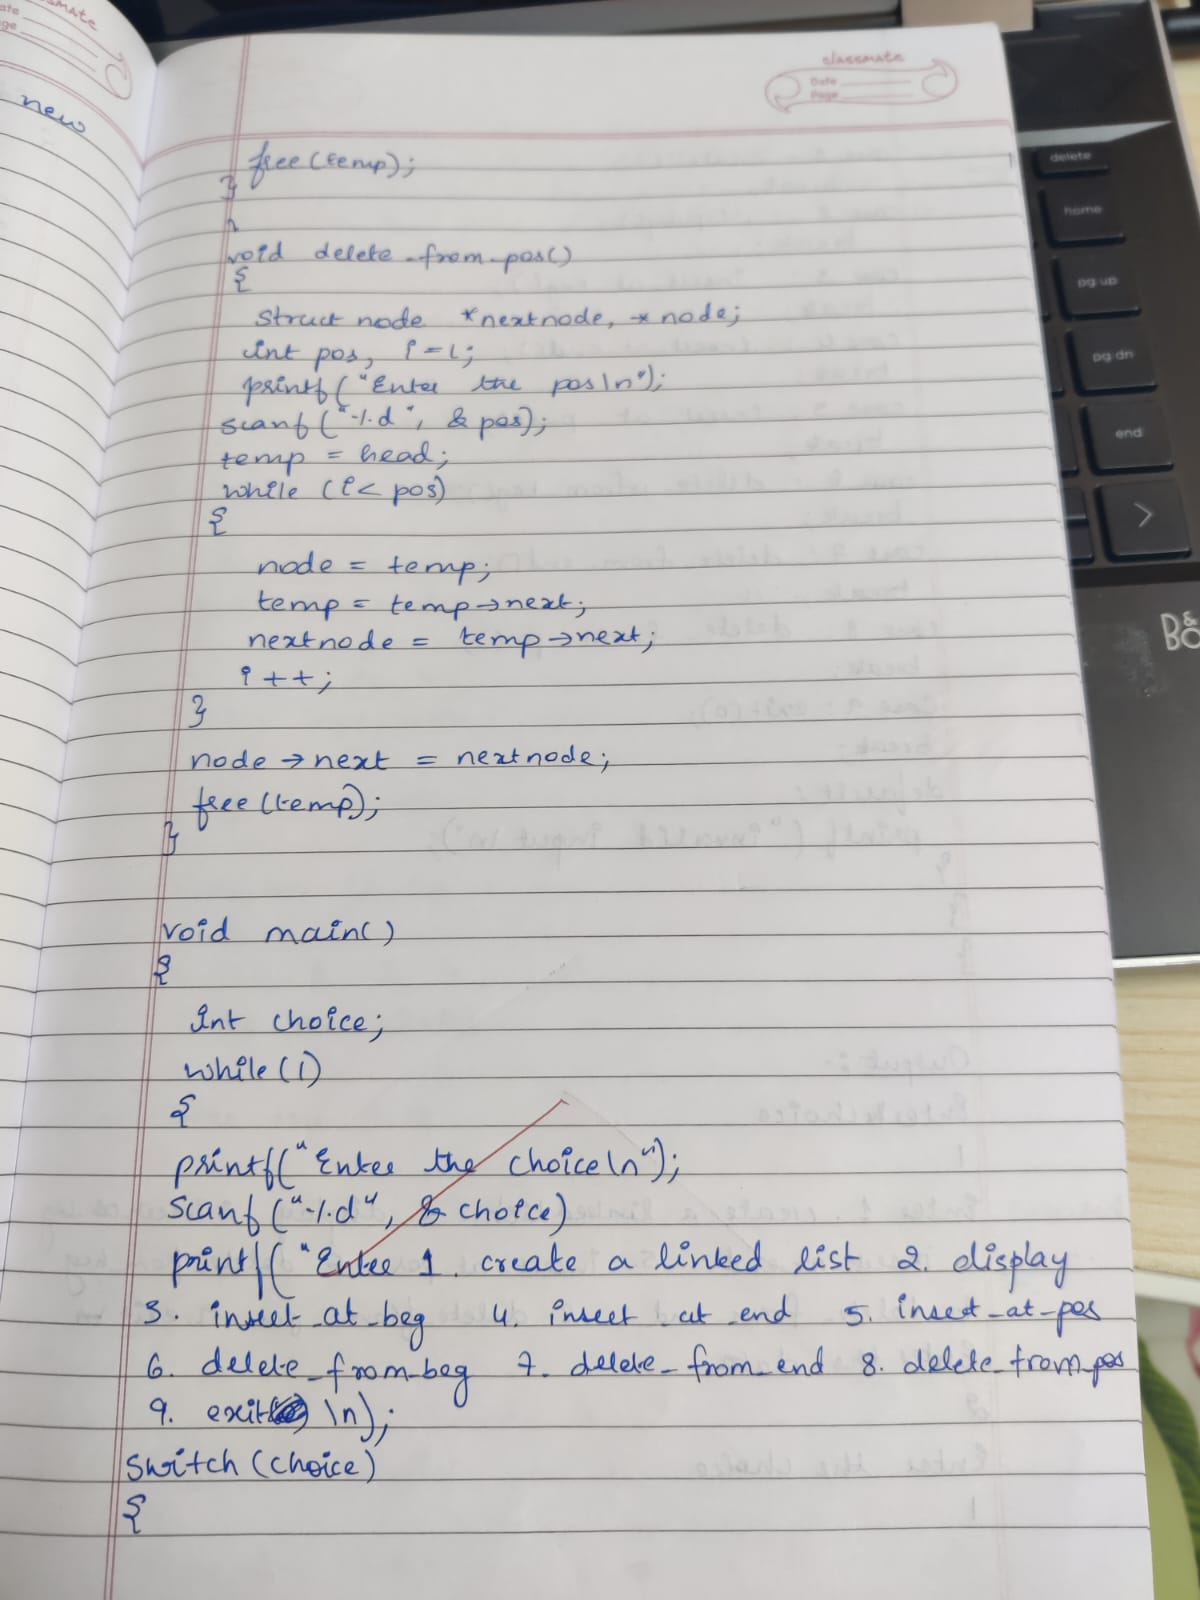 new
classmate
Date
Page
free(temp);
}
}
void delete_from_pos()
{
struct node *nextnode, *node;
int pos, i=1;
printf("Enter the pos\n");
scanf("%d", &pos);
temp = head;
while (i< pos)
{
node = temp;
temp = temp->next;
nextnode = temp->next;
i++;
}
node->next = nextnode;
free(temp);
}
void main()
{
int choice;
while(1)
{
printf("Enter the choice\n");
scanf("%d", &choice)
printf("Enter 1. create a linked list 2. display
3. insert_at_beg 4. insert_at_end 5. insert_at_pos
6. delete_from_beg 7. delete_from_end 8. delete_from_pos
9. exit \n);
switch(choice)
{
delete
home
pg up
pg dn
end
B&O